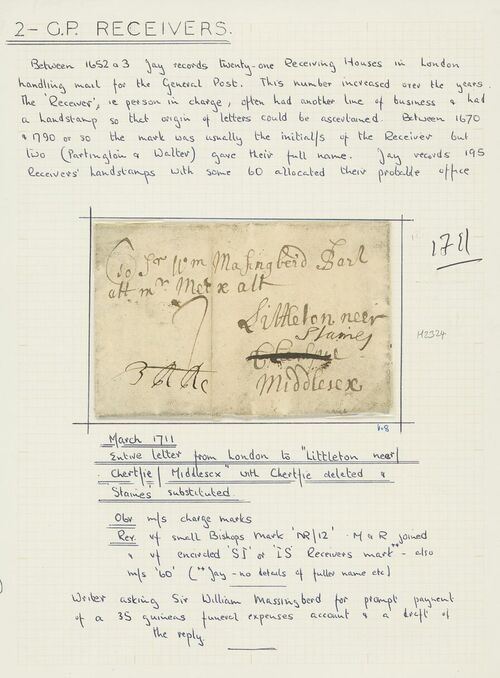 2 - G.P. RECEIVERS.
Between 1652 & 3 Jay records twenty-one Receiving Houses in London
handling mail for the General Post. This number increased over the years.
The 'Receiver', ie person in charge, often had another line of business & had
a handstamp so that origin of letters could be ascertained. Between 1670
& 1790 or so the mark was usually the initial/s of the Receiver but
two (Partington & Walter) gave their full name. Jay records 195
Receivers' handstamps with some 60 allocated their probable office
1711
To Sr Wm Masingberd Bart
att mr
att
Littleton neer
Staines
Middlesex
H2324
V-8
March 1711
Entire letter from London to "Littleton near/
Chertsie/ Middlesex" with Chertsie deleted &
'Staines' substituted.
Obv m/s charge marks
Rev. vf small Bishops Mark 'MR/12' - M & R joined
& vf encircled 'SI' or 'IS' Receivers mark** - also
m/s '60' (** Jay - no details of fuller name etc)
Writer asking Sir William Massingberd for prompt payment
of a 35 guineas funeral expenses account & a draft of
the reply.